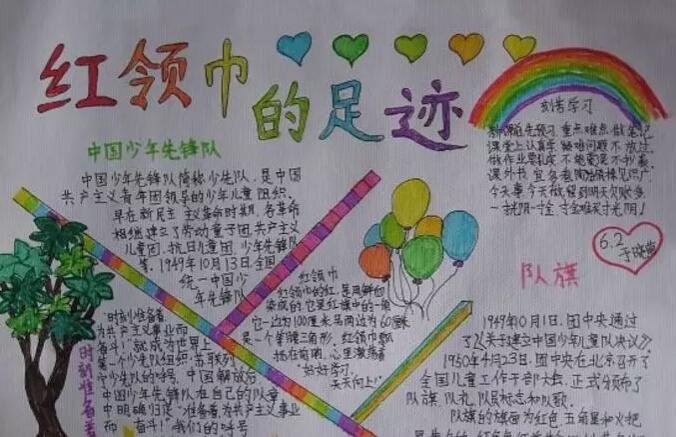 红领巾
的足迹
中国少年先锋队
中国少年先锋队简称少先队,是中
国共产主义青年团领导的少年儿童组织。
早在新民主主义革命时期,各革命
相继建立了劳动童子团,共产主义
儿童团,抗日儿童团,少年先锋队
等,1949年10月13日全国
统一中国少
年先锋队
刻苦学习
新课之前先预习 重点难点做笔记
课堂上认真学 疑难问题不放过
做作业要
课外书
今天事今天做
一寸光阴一寸金 寸金难买寸光阴!
6.2
红领巾
红领巾的红,是用鲜血
染成的,它是红旗中的一角
它一边为100厘米另两边为60厘米
是一个等腰三角形,红领巾飘
扬在前胸,心里激荡着
"好好学习,
天天向上!"
时刻准备着
"时刻准备着,
为共产主义事业而
奋斗!"就成为世界上
第一个少先队组织:苏联列
宁少先队的呼号。中国解放后,
中国少年先锋队在自己的队章
中明确归定"准备着,为共产主义事业
而奋斗!"我们的呼号
队旗
1949年0月1日,团中央通过
了《关于建立中国少年儿童队决议》
1950年4月23日,团中央在北京召开了
全国儿童工作干部大会,正式颁布了
队旗,队礼,队员标志和队歌。
队旗的旗面为红色,五角星和火把